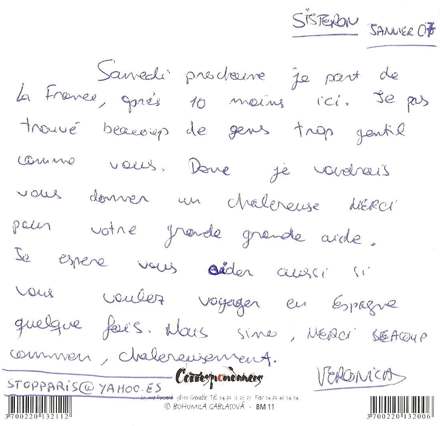 SISTERON JANVIER 07
Samedi prochaine je part de
la France, après 10 moins ici. Je pas
trouvé beaucoup de gens trop gentil
comme vous. Donc je voudrais
vous donner un chalereuse MERCI
pour votre grande grande aide.
Je espere vous aider aussi si
vous voulez voyager en Espagne
quelque fois. Mais sino, MERCI BEACOUP
common, chalereusement.
STOPPARIS@YAHOO.ES
Correspondances
VERONICA
© BOHUMILA CABLATOVÁ - BM 11
3700220132112
3700220132006